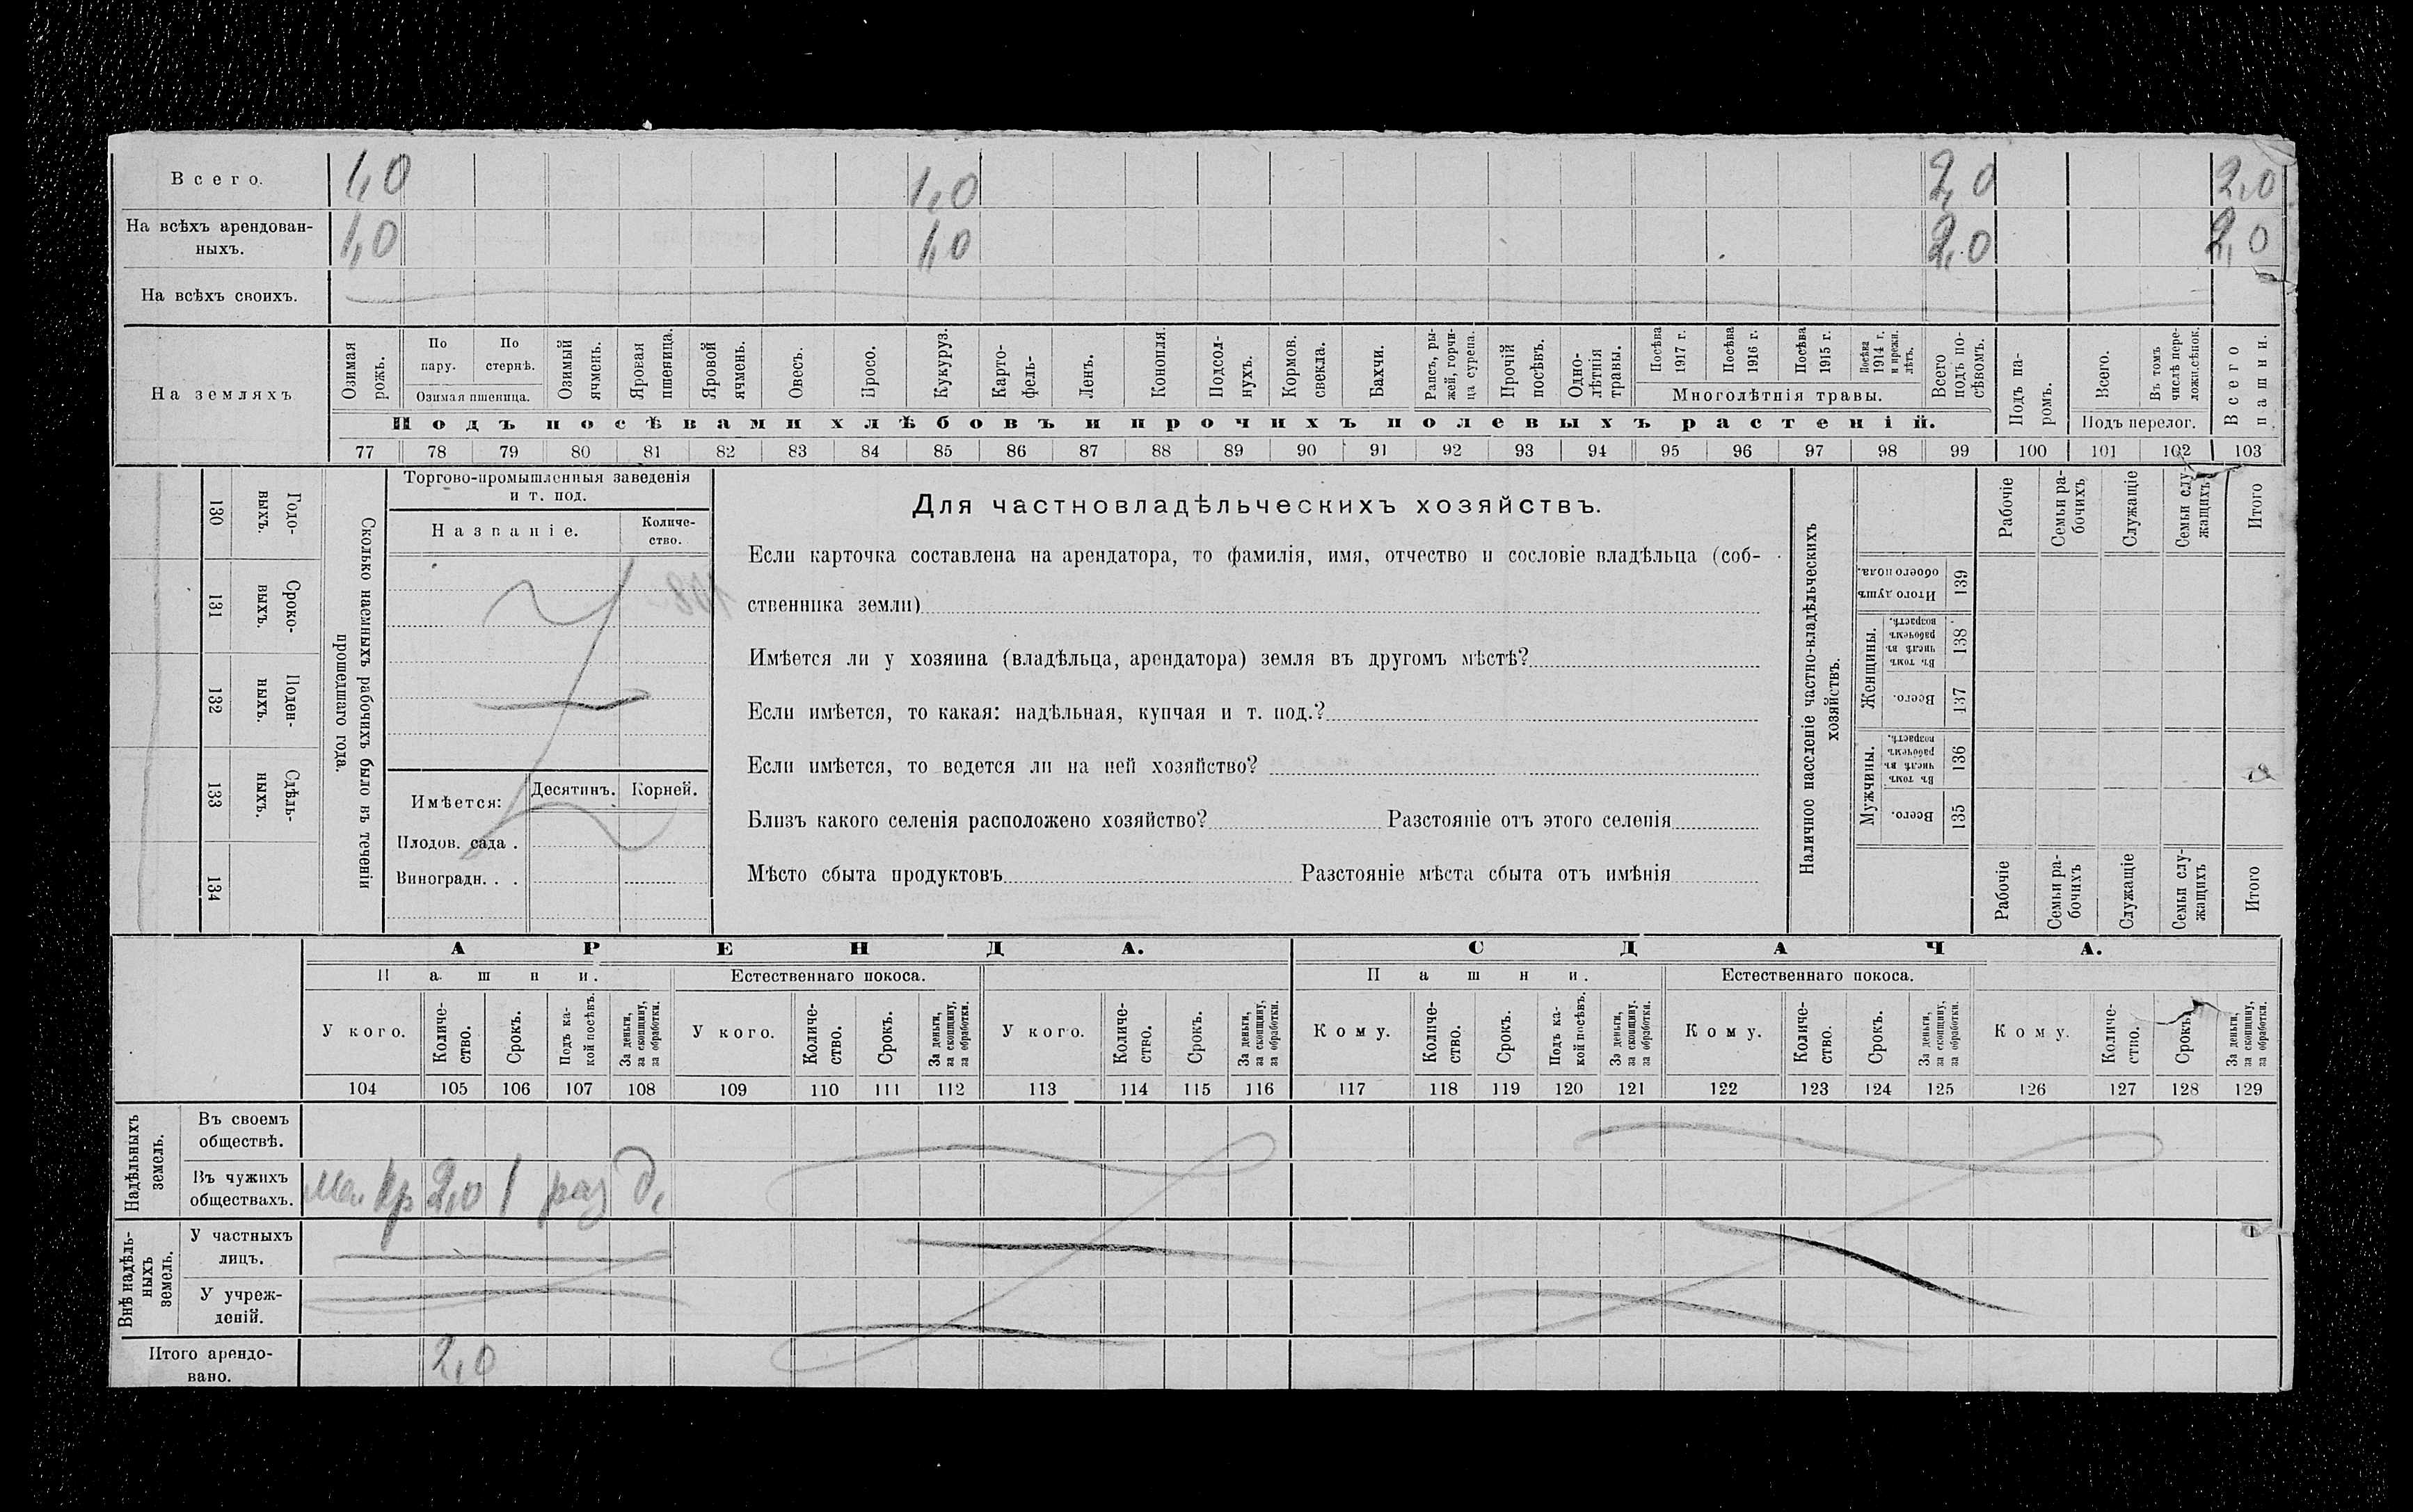 Всего. 1,0 1,0 2,0 2,0
На всѣхъ арендован-
ныхъ. 1,0 1,0 2,0 2,0
На всѣхъ своихъ.
На земляхъ
Озимая рожь.
По пару.
По стернѣ.
Озимая пшеница.
Озимый ячмень.
Яровая пшеница.
Яровой ячмень.
Овесъ.
Просо.
Кукуруз.
Карто-
фель-
Ленъ.
Конопля.
Подсол-
нухъ.
Кормов.
свекла.
Бахчи.
Рапсъ, ры-
жей, горчи-
ца сурепа.
Прочій
посѣвъ.
Одно-
лѣтнія
травы.
Посѣва
1917 г.
Посѣва
1916 г.
Посѣва
1915 г.
Посѣва
1914 г.
и прежн.
лѣтъ.
Многолѣтнія травы.
Всего
подъ по-
сѣвомъ.
Подъ па-
ромъ.
Всего.
Въ томъ
числѣ пере-
лож. сѣнок.
Подъ перелог.
Всего
пашни.
Подъ посѣвами хлѣбовъ и прочихъ полевыхъ растеній.
77 78 79 80 81 82 83 84 85 86 87 88 89 90 91 92 93 94 95 96 97 98 99 100 101 102 103
130 Годо-
выхъ.
131 Сроко-
выхъ.
132 Поден-
ныхъ.
133 Сдѣль-
ныхъ.
134
Сколько наемныхъ рабочихъ было въ теченіи
прошедшаго года.
Торгово-промышленныя заведенія
и т. под.
Названіе.
Количе-
ство.
Имѣется: Десятинъ. Корней.
Плодов. сада .
Виноградн. . .
Для частновладѣльческихъ хозяйствъ.
Если карточка составлена на арендатора, то фамилія, имя, отчество и сословіе владѣльца (соб-
ственника земли)
Имѣется ли у хозяина (владѣльца, арендатора) земля въ другомъ мѣстѣ?
Если имѣется, то какая: надѣльная, купчая и т. под.?
Если имѣется, то ведется ли на ней хозяйство?
Близъ какого селенія расположено хозяйство? Разстояніе отъ этого селенія
Мѣсто сбыта продуктовъ Разстояніе мѣста сбыта отъ имѣнія
Наличное населеніе частно-владѣльческихъ
хозяйствъ.
Рабочіе
Семьи ра-
бочихъ
Служащіе
Семьи слу-
жащихъ
Итого
Итого душъ
обоего пола.
139
Женщины.
Въ томъ
числѣ въ
рабочемъ
возрастѣ.
138
Всего.
137
Мужчины.
Въ томъ
числѣ въ
рабочемъ
возрастѣ.
136
Всего.
135
Рабочіе
Семьи ра-
бочихъ
Служащіе
Семьи слу-
жащихъ
Итого
АРЕНДА. СДАЧА.
Пашни. Естественнаго покоса. Пашни. Естественнаго покоса.
У кого.
Количе-
ство.
Срокъ.
Подъ ка-
кой посѣвъ.
За деньги,
за скопщину,
за обработки.
У кого.
Количе-
ство.
Срокъ.
За деньги,
за скопщину,
за обработки.
У кого.
Количе-
ство.
Срокъ.
За деньги,
за скопщину,
за обработки.
Кому.
Количе-
ство.
Срокъ.
Подъ ка-
кой посѣвъ.
За деньги,
за скопщину,
за обработки.
Кому.
Количе-
ство.
Срокъ.
За деньги,
за скопщину,
за обработки.
Кому.
Количе-
ство.
Срокъ.
За деньги,
за скопщину,
за обработки.
104 105 106 107 108 109 110 111 112 113 114 115 116 117 118 119 120 121 122 123 124 125 126 127 128 129
Надѣльныхъ
земель.
Въ своемъ
обществѣ.
Въ чужихъ
обществахъ. кр 2,0 1 раз д.
Внѣ надѣль-
ныхъ
земель.
У частныхъ
лицъ.
У учреж-
деній.
Итого арендо-
вано. 2,0